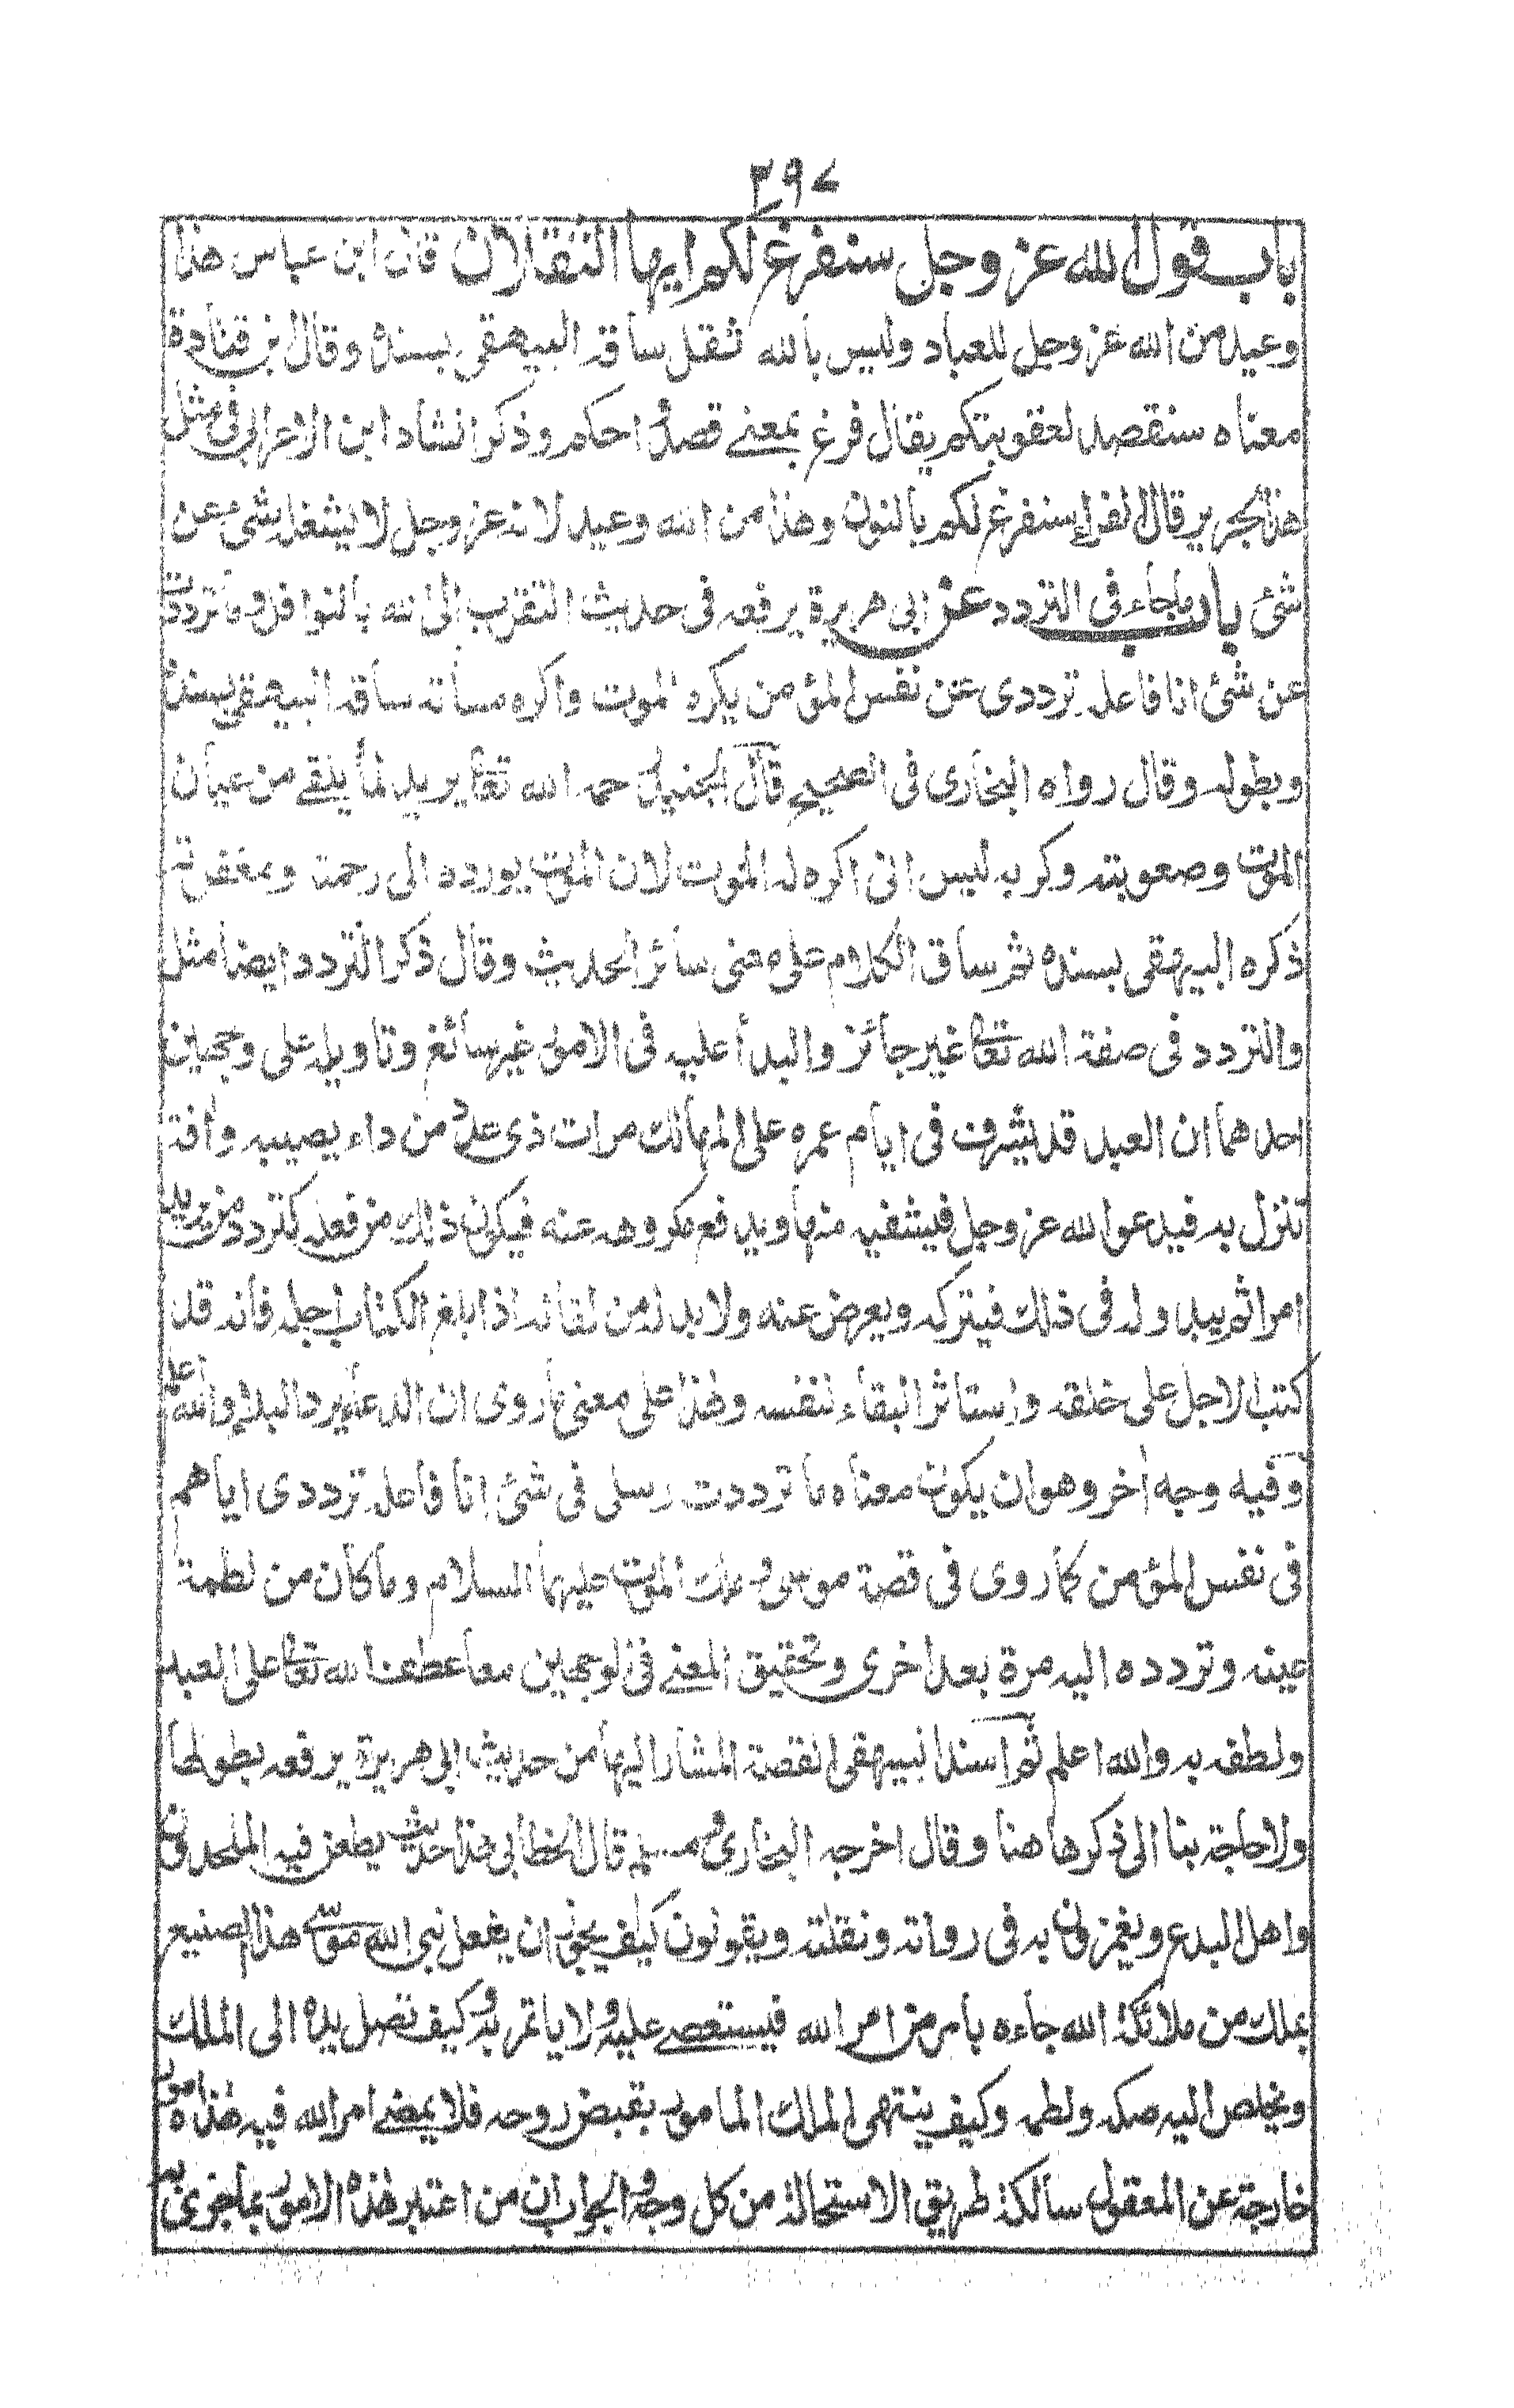 ٣٩٧
باب قول الله عز وجل سنفرغ لكم ايها الثقلان قال ابن عباس هذا
وعيد من الله عز وجل للعباد وليس بالله ثقل ساقه البيهقي بسنده وقال ابن قتادة
معناه سنقصد لعقوبتكم يقال فرغ بمعنے قصد احكم وذكر انشاد ابن الاعرابي في مثل
هذا لجرير قال الفراء سنفرغ لكم بالنون وهذا من الله وعيد لانه عز وجل لا يشغله شئ عن
شئ باب ماجاء في التردد عن ابي هريرة يرفعه في حديث التقرب الى الله بالنوافل وما ترددت
عن شئ انا فاعله ترددى عن نفس المؤمن يكره الموت واكره مساته ساقه البيهقي بسنده
وبطوله وقال رواه البخارى في الصحيح قال الجنيد رحمه الله تعالى يريد لما يلقے من عيان
الموت وصعوبته وكربه ليس انى اكره له الموت لان الموت يورده الى رحمته ومغفرته
ذكره البيهقى بسنده ثم ساق الكلام على معنى سائر الحديث وقال ذكر التردد ايضا مثل
والتردد في صفة الله تعالى غير جائز والبدأ عليه في الامور غير سائغ وتاويله على وجهين
احدهما ان العبد قد يشرف في ايام عمره على المهالك مرات ذى عدد من داء يصيبه وافة
تنزل به فيدعو الله عز وجل فيشفيه منها ويدفع مكروهه عنه فيكون ذلك من فعله كتردد من يريد
امرا ثم يبدو له في ذلك فيتركه ويعرض عنه ولا بد له من لقائه اذا بلغ الكتاب اجله فانه قد
كتب الاجل على خلقه واستاثر البقاء لنفسه وهذا على معنى ما روى ان الدعاء يرد البلاء والله اعلم
وفيه وجه اخر وهو ان يكون معناه ما ترددت رسلى في شئ انا فاعله ترددى اياهم
في نفس المؤمن كما روى في قصة موسى وملك الموت عليهما السلام وما كان من لطمة
عينه وتردده اليه مرة بعد اخرى وتحقيق المعنے في الوجهين معا عطف الله تعالى على العبد
ولطفه به والله اعلم ثم اسند البيهقى القصة المشار اليها من حديث ابى هريرة يرفعه بطولها
ولا حاجة بنا الى ذكرها هنا وقال اخرجه البخارى ومسلم قال الخطابى هذا حديث يطعن فيه الملحدون
واهل البدع ويغمزون به في رواته ونقلته ويقولون كيف يجوز ان يفعل نبى الله موسى هذا الصنيع
بملك من ملائكة الله جاءه بامر من امر الله فيستعصے عليه ولا ياتمر به وكيف تصل يده الى الملك
ويخلص اليه صكه ولطمه وكيف ينتهى الملك المامور بقبض روحه فلا يمضے امر الله فيه هذه امور
خارجة عن المعقول سالكة طريق الاستحالة من كل وجه والجواب ان من اعتبر هذه الامور بما جرى به